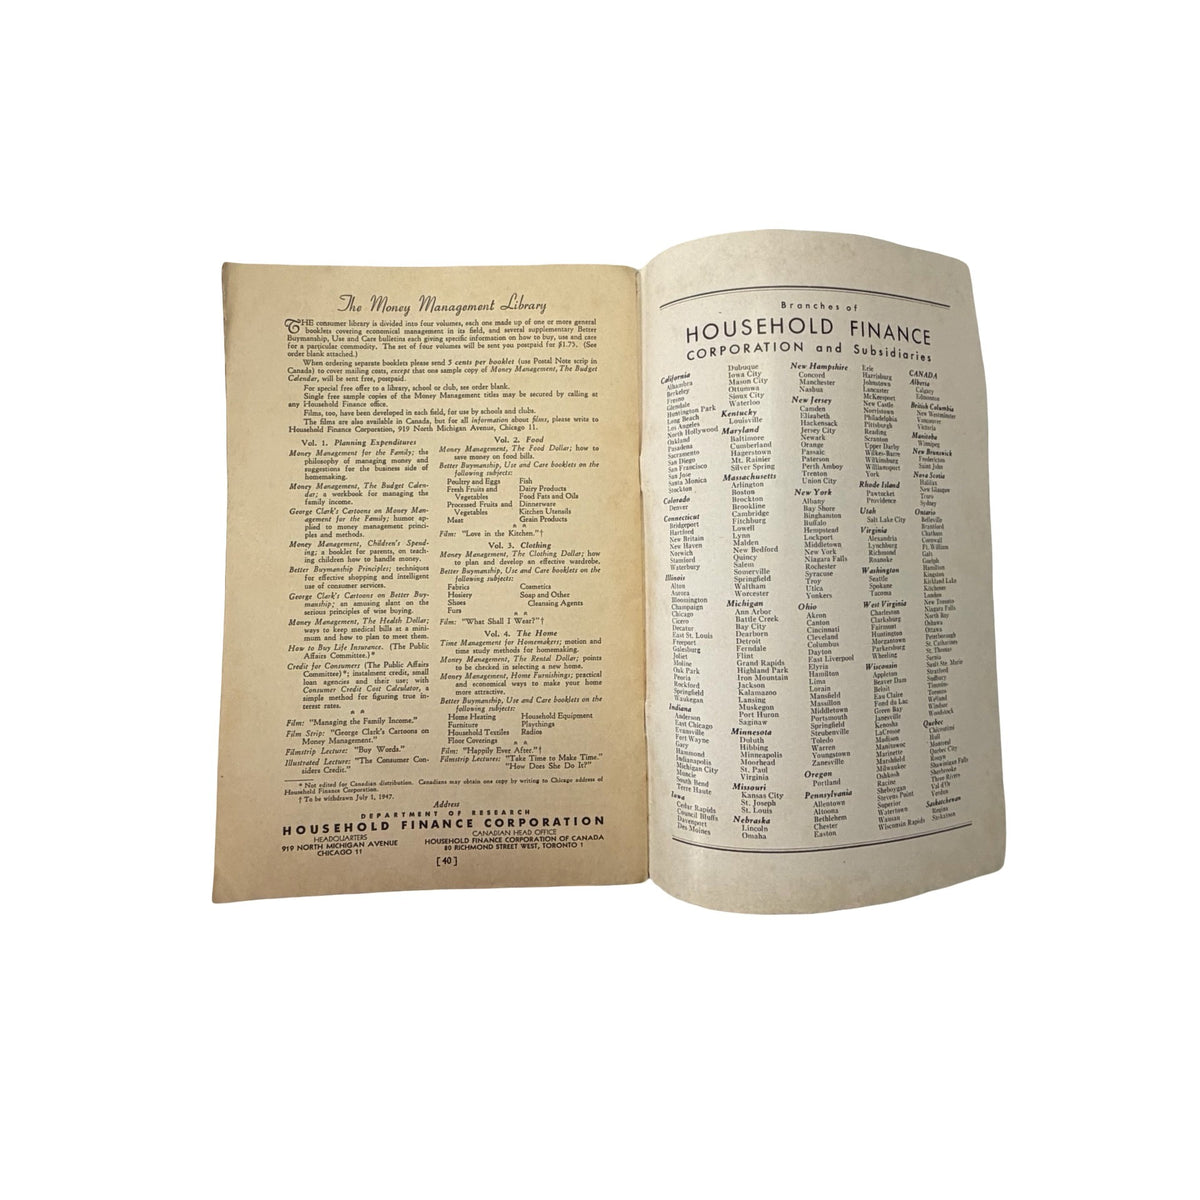 The Money Management Library
THE consumer library is divided into four volumes, each one made up of one or more general
booklets covering economical management in its field, and several supplementary Better
Buymanship, Use and Care bulletins each giving specific information on how to buy, use and care
for a particular commodity. The set of four volumes will be sent you postpaid for $1.75. (See
order blank attached.)
When ordering separate booklets please send 5 cents per booklet (use Postal Note scrip in
Canada) to cover mailing costs, except that one sample copy of Money Management, The Budget
Calendar, will be sent free, postpaid.
For special free offer to a library, school or club, see order blank.
Single free sample copies of the Money Management titles may be secured by calling at
any Household Finance office.
Films, too, have been developed in each field, for use by schools and clubs.
The films are also available in Canada, but for all information about films, please write to
Household Finance Corporation, 919 North Michigan Avenue, Chicago 11.
Vol. 1. Planning Expenditures
Money Management for the Family; the
philosophy of managing money and
suggestions for the business side of
homemaking.
Money Management, The Budget Calen-
dar; a workbook for managing the
family income.
George Clark's Cartoons on Money Man-
agement for the Family; humor ap-
plied to money management princi-
ples and methods.
Money Management, Children's Spend-
ing; a booklet for parents, on teach-
ing children how to handle money.
Better Buymanship Principles; techniques
for effective shopping and intelligent
use of consumer services.
George Clark's Cartoons on Better Buy-
manship; an amusing slant on the
serious principles of wise buying.
Money Management, The Health Dollar;
ways to keep medical bills at a mini-
mum and how to plan to meet them.
How to Buy Life Insurance. (The Public
Affairs Committee.)*
Credit for Consumers (The Public Affairs
Committee)*; instalment credit, small
loan agencies and their use; with
Consumer Credit Cost Calculator, a
simple method for figuring true in-
terest rates.
Film: "Managing the Family Income."
Film Strip: "George Clark's Cartoons on
Money Management."
Filmstrip Lecture: "Buy Words."
Illustrated Lecture: "The Consumer Con-
siders Credit."
Vol. 2. Food
Money Management, The Food Dollar; how to
save money on food bills.
Better Buymanship, Use and Care booklets on the
following subjects:
Poultry and Eggs Fish
Fresh Fruits and Dairy Products
Vegetables Food Fats and Oils
Processed Fruits and Dinnerware
Vegetables Kitchen Utensils
Meat Grain Products
Film: "Love in the Kitchen."†
Vol. 3. Clothing
Money Management, The Clothing Dollar; how
to plan and develop an effective wardrobe.
Better Buymanship, Use and Care booklets on the
following subjects:
Fabrics Cosmetics
Hosiery Soap and Other
Shoes Cleansing Agents
Furs
Film: "What Shall I Wear?"†
Vol. 4. The Home
Time Management for Homemakers; motion and
time study methods for homemaking.
Money Management, The Rental Dollar; points
to be checked in selecting a new home.
Money Management, Home Furnishings; practical
and economical ways to make your home
more attractive.
Better Buymanship, Use and Care booklets on the
following subjects:
Home Heating Household Equipment
Furniture Playthings
Household Textiles Radios
Floor Coverings
Film: "Happily Ever After."†
Filmstrip Lectures: "Take Time to Make Time."
"How Does She Do It?"
* Not edited for Canadian distribution. Canadians may obtain one copy by writing to Chicago address of
Household Finance Corporation.
† To be withdrawn July 1, 1947.
Address
DEPARTMENT OF RESEARCH
HOUSEHOLD FINANCE CORPORATION
HEADQUARTERS
919 NORTH MICHIGAN AVENUE
CHICAGO 11
CANADIAN HEAD OFFICE
HOUSEHOLD FINANCE CORPORATION OF CANADA
80 RICHMOND STREET WEST, TORONTO 1
[40]
Branches of
HOUSEHOLD FINANCE
CORPORATION and Subsidiaries
California
Alhambra
Berkeley
Fresno
Glendale
Huntington Park
Long Beach
Los Angeles
North Hollywood
Oakland
Pasadena
Sacramento
San Diego
San Francisco
San Jose
Santa Monica
Stockton
Colorado
Denver
Connecticut
Bridgeport
Hartford
New Britain
New Haven
Norwich
Stamford
Waterbury
Illinois
Alton
Aurora
Bloomington
Champaign
Chicago
Cicero
Decatur
East St. Louis
Freeport
Galesburg
Joliet
Moline
Oak Park
Peoria
Rockford
Springfield
Waukegan
Indiana
Anderson
East Chicago
Evansville
Fort Wayne
Gary
Hammond
Indianapolis
Michigan City
Muncie
South Bend
Terre Haute
Iowa
Cedar Rapids
Council Bluffs
Davenport
Des Moines
Dubuque
Iowa City
Mason City
Ottumwa
Sioux City
Waterloo
Kentucky
Louisville
Maryland
Baltimore
Cumberland
Hagerstown
Mt. Rainier
Silver Spring
Massachusetts
Arlington
Boston
Brockton
Brookline
Cambridge
Fitchburg
Lowell
Lynn
Malden
New Bedford
Quincy
Salem
Somerville
Springfield
Waltham
Worcester
Michigan
Ann Arbor
Battle Creek
Bay City
Dearborn
Detroit
Ferndale
Flint
Grand Rapids
Highland Park
Iron Mountain
Jackson
Kalamazoo
Lansing
Muskegon
Port Huron
Saginaw
Minnesota
Duluth
Hibbing
Minneapolis
Moorhead
St. Paul
Virginia
Missouri
Kansas City
St. Joseph
St. Louis
Nebraska
Lincoln
Omaha
New Hampshire
Concord
Manchester
Nashua
New Jersey
Camden
Elizabeth
Hackensack
Jersey City
Newark
Orange
Passaic
Paterson
Perth Amboy
Trenton
Union City
New York
Albany
Bay Shore
Binghamton
Buffalo
Hempstead
Lockport
Middletown
New York
Niagara Falls
Rochester
Syracuse
Troy
Utica
Yonkers
Ohio
Akron
Canton
Cincinnati
Cleveland
Columbus
Dayton
East Liverpool
Elyria
Hamilton
Lima
Lorain
Mansfield
Massillon
Middletown
Portsmouth
Springfield
Steubenville
Toledo
Warren
Youngstown
Zanesville
Oregon
Portland
Pennsylvania
Allentown
Altoona
Bethlehem
Chester
Easton
Erie
Harrisburg
Johnstown
Lancaster
McKeesport
New Castle
Norristown
Philadelphia
Pittsburgh
Reading
Scranton
Upper Darby
Wilkes-Barre
Wilkinsburg
Williamsport
York
Rhode Island
Pawtucket
Providence
Utah
Salt Lake City
Virginia
Alexandria
Lynchburg
Richmond
Roanoke
Washington
Seattle
Spokane
Tacoma
West Virginia
Charleston
Clarksburg
Fairmont
Huntington
Morgantown
Wheeling
Wisconsin
Appleton
Beaver Dam
Beloit
Eau Claire
Fond du Lac
Green Bay
Janesville
Kenosha
LaCrosse
Madison
Manitowoc
Marinette
Marshfield
Milwaukee
Oshkosh
Racine
Sheboygan
Stevens Point
Superior
Watertown
Wausau
Wisconsin Rapids
CANADA
Alberta
Calgary
Edmonton
British Columbia
New Westminster
Vancouver
Victoria
Manitoba
Winnipeg
New Brunswick
Fredericton
Saint John
Nova Scotia
Halifax
New Glasgow
Truro
Sydney
Ontario
Belleville
Brantford
Chatham
Cornwall
Ft. William
Galt
Guelph
Hamilton
Kingston
Kirkland Lake
Kitchener
London
New Toronto
Niagara Falls
North Bay
Oshawa
Ottawa
Peterborough
St. Catharines
St. Thomas
Sarnia
Sault Ste. Marie
Stratford
Sudbury
Timmins
Toronto
Welland
Windsor
Woodstock
Quebec
Chicoutimi
Hull
Montreal
Quebec City
Rouyn
Shawinigan Falls
Sherbrooke
Three Rivers
Val d'Or
Verdun
Saskatchewan
Regina
Saskatoon